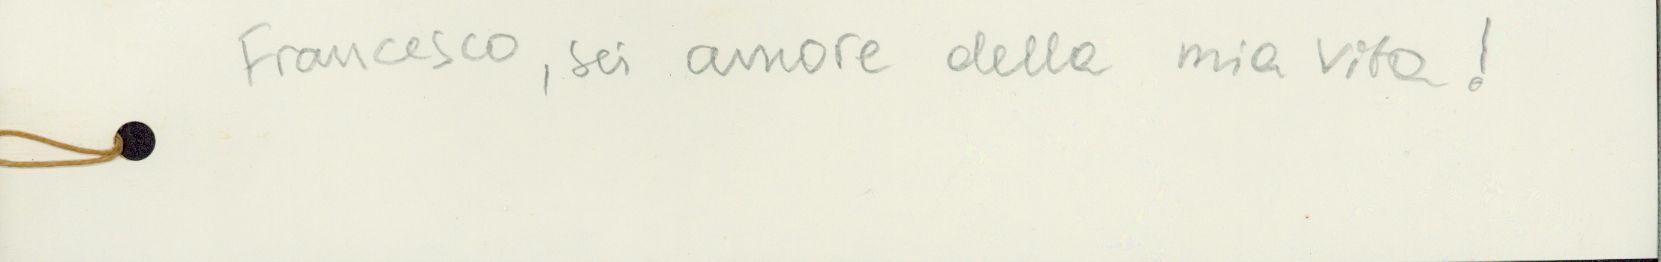 Francesco, sei amore della mia vita!